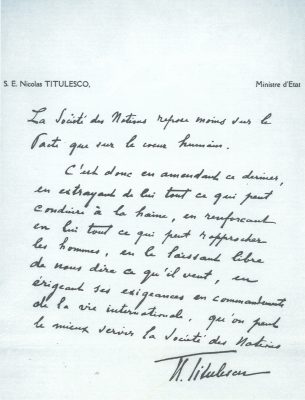 S. E. Nicolas TITULESCO, Ministre d'Etat
La Société des Nations repose moins sur le
Pacte que sur le coeur humain.
C'est donc en amendant ce dernier,
en extrayant de lui tout ce qui peut
conduire à la haine, en renforçant
en lui tout ce qui peut rapprocher
les hommes, en le laissant libre
de nous dire ce qu'il veut, en
érigeant ses exigeances en commandements
de la vie internationale, qu'on peut
le mieux servir la Société des Nations
N. Titulescu